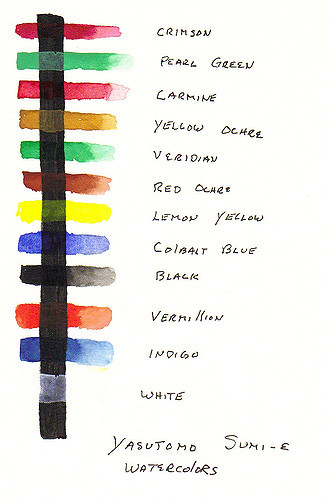 CRIMSON
PEARL GREEN
CARMINE
YELLOW OCHRE
VERIDIAN
RED OCHRE
LEMON YELLOW
COLBALT BLUE
BLACK
VERMILLION
INDIGO
WHITE
YASUTOMO SUMI-E
WATERCOLORS